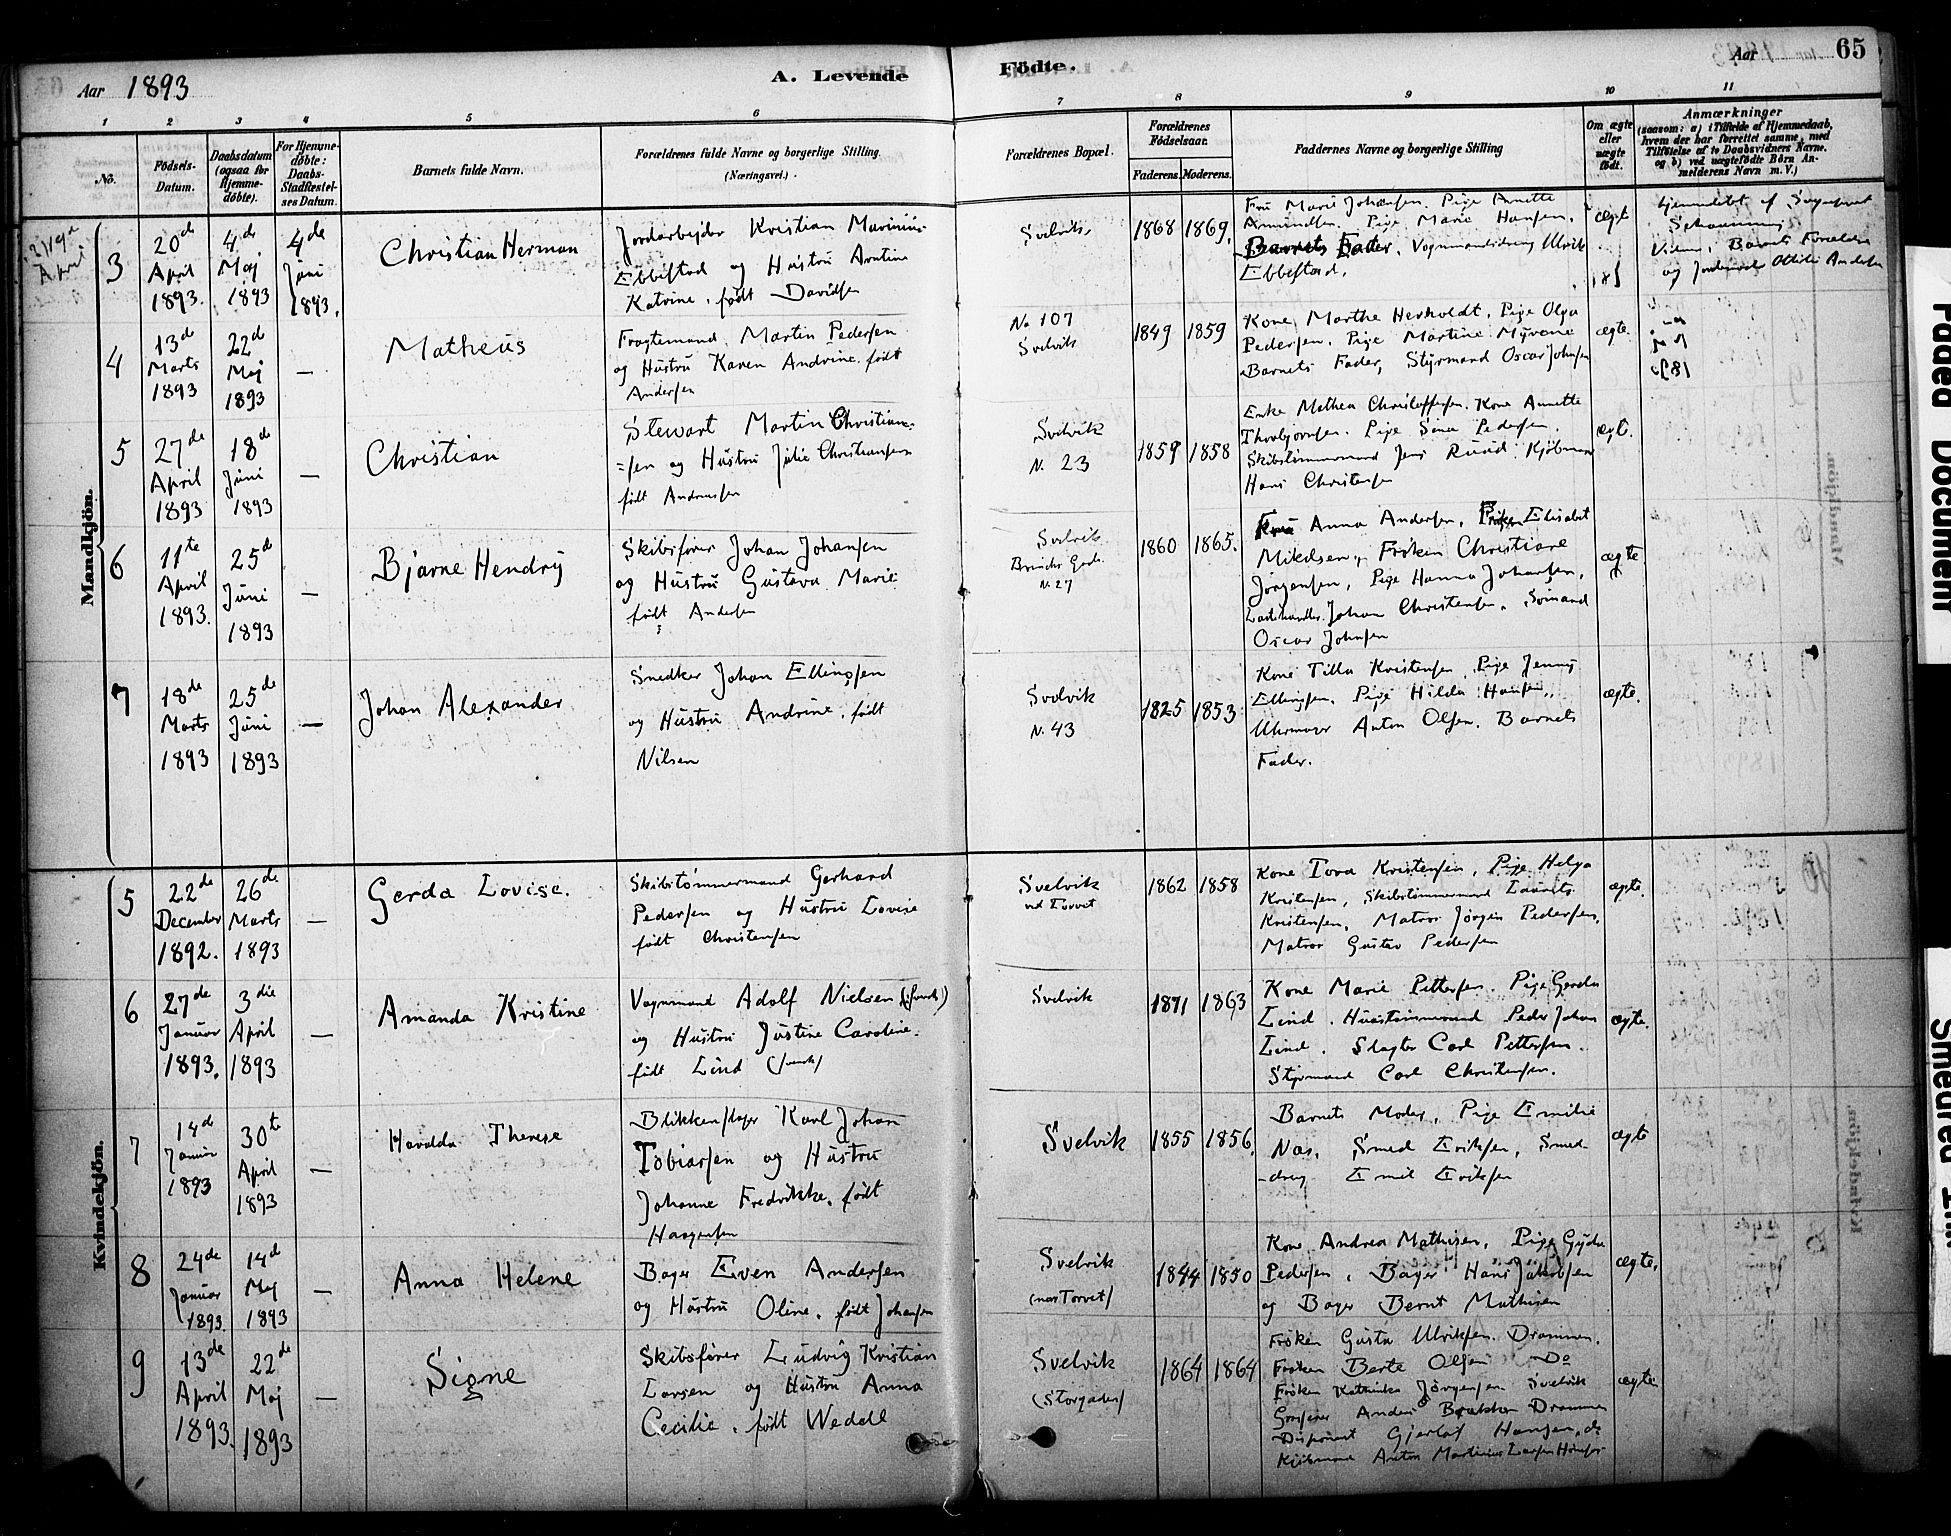 Aar 1893
A. Levende
Fødte.
Aar
65
1
2
3
4
5
6
7
8
9
10
11
No.
Fødsels-
Datum.
Daabsdatum
(ogsaa for
Hjemme-
døbte).
For Hjemme-
døbte:
Daabs-
Stadfæstel-
ses Datum.
Barnets fulde Navn.
Forældrenes fulde Navne og borgerlige Stilling
(Næringsvei).
Forældrenes Bopæl.
Forældrenes
Fødselsaar.
Faderens.
Moderens.
Faddernes Navne og borgerlige Stilling
Om ægte
eller
uægte
født.
Anmærkninger
(saasom: a) i Tilfælde af Hjemmedaab,
hvem der har forrettet samme, med
Tilføielse af to Daabsvidners Navne,
og b) ved uægtefødte Børn An-
melderens Navn m. V.)
Mandkjøn.
April
3
20de
April
1893.
4de
Maj
1893
4de
Juni
1893.
Christian Herman
Jordarbejder Kristian Marinius
Ebbestad og Hustru Arntine
Katrine, født Davidsen
Svelvik
1868
1869.
Fru Marie Johansen, Pige Anette
Amundsen, Pige Marie Hansen,
Barnets Fader, Vognmandsdreng Ulrik
Ebbestad.
ægte
Hjemmedøbt af Sogneprest
Vidner, Barnets Forældre
og Jordemoder Othilie Andersen
4
13de
Marts
1893
22de
Maj
1893
—
Matheus
Fragtemand Martin Pedersen
og Hustru Karen Andrine, født
Andersen
No 107
Svelvik
1849
1859
Kone Marthe Herholdt, Pige Olga
Pedersen, Pige Martine Myrene
Barnets Fader, Styrmand Oscar Johnsen
ægte.
5
27de
April
1893
18de
Juni
1893
—
Christian
Stewart Martin Christian-
=sen og Hustru Julie Christiansen
født Andreassen
Svelvik
N. 23
1859
1858
Enke Mathea Christoffersen, Kone Annette
Thorbjørnsen, Pige Sina Pedersen,
Skibstømmermand Jens Ruud, Kjøbmand
Hans Christensen
ægt.
6
11te
April
1893.
25de
Juni
1893
—
Bjarne Hendry
Skibsfører Johan Johansen
og Hustru Gustava Marie
født Andersen
Svelvik
N. 27
1860
1865.
Fru Anna Andersen, Frøken Elisabet
Mikelsen, Frøken Christiane
Jørgensen, Pige Hanna Johansen,
Johan Christensen, Sømand
Oscar Johnsen
ægte.
7
18de
Marts
1893
25de
Juni
1893
—
Johan Alexander
Snedker Johan Ellingsen
og Hustru Andrine, født
Nilsen
Svelvik
N. 43
1825
1853
Kone Tilla Kristensen, Pige Jenny
Ellingsen, Pige Hilda Hansen,
Uhrmager Anton Olsen, Barnets
Fader.
ægte.
Kvindekjøn.
5
22de
December
1892.
26de
Marts
1893
—
Gerda Lovise.
Skibstømmermand Gerhard
Pedersen og Hustru Lovise
født Christensen
Svelvik
ved Torvet
1862
1858
Kone Tova Kristensen, Pige Helga
Kristensen, Skibstømmermand Laurits
Kristensen, Matros Jørgen Pedersen,
Matros Gustav Pedersen
ægte.
6
27de
Januar
1893.
3die
April
1893
—
Amanda Kristine
Vognmand Adolf Nielsen (svensk)
og Hustru Justine Caroline
født Lind (svensk)
Svelvik
1871
1863
Kone Marie Pettersen, Pige Gerda
Lind, Peder Johan
Lind, Slagter Carl Pettersen,
Styrmand Carl Christensen.
ægte.
7
14de
Januar
1893
30te
April
1893
—
Haralda Therese
Blikkenslager Karl Johan
Tobiassen og Hustru
Johanne Fredrikke, født
Haagensen
Svelvik
1855
1856.
Barnets Moder, Pige Emilie
Næs, Smed Eriksen, Smed-
-dreng Emil Eriksen
ægte
8
24de
Januar
1893.
14de
Maj
1893
—
Anna Helene
Bager Even Andersen
og Hustru Oline, født Johansen
Svelvik
(nær Torvet)
1844
1850
Kone Andrea Mathisen, Pige Gyda
Pedersen, Bager Hans Jakobsen
og Bager Bernt Mathisen
ægte.
9
13de
April
1893.
22de
Maj
1893
—
Signe
Skibsfører Ludvig Kristian
Larsen og Hustru Anna
Cecilie, født Wedell
Svelvik
(Storgaden)
1864
1864
Frøken Gusta Ulriksen, Drammen.
Frøken Berte Olsen Do
Frøken Kathinka Jørgensen Svelvik
Drammen
Disponent Gjerløf Hansen, do
Kjøbmand Anton Martinius Larsen
ægte
Faded Document
Smeared Ink